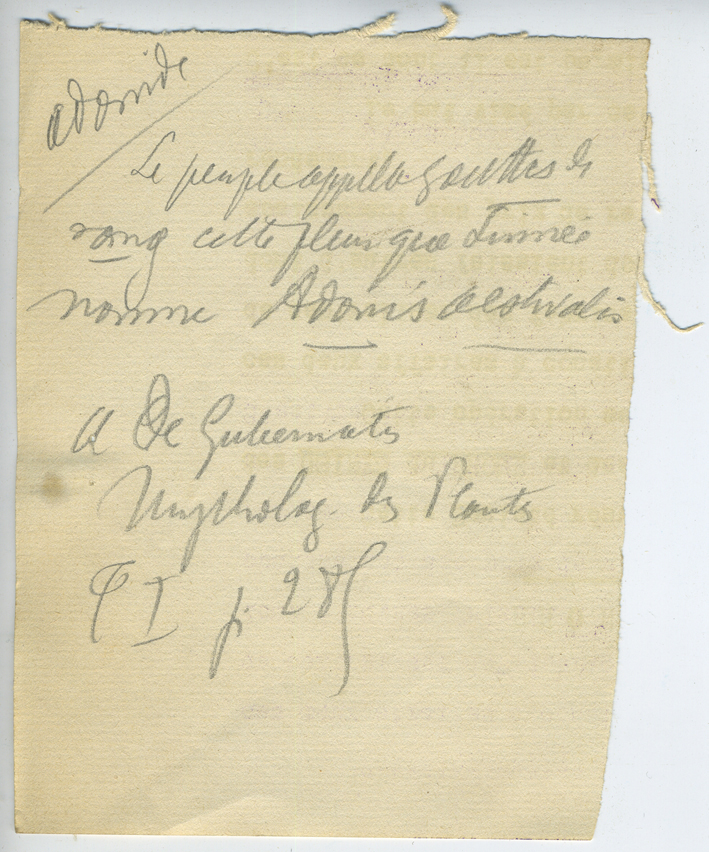 adonide
Le peuple appelle gouttes de
sang cette fleur que Linnée
nomme Adonis aestivalis
A De Gubernatis
Mytholog. des Plantes
T I p. 285